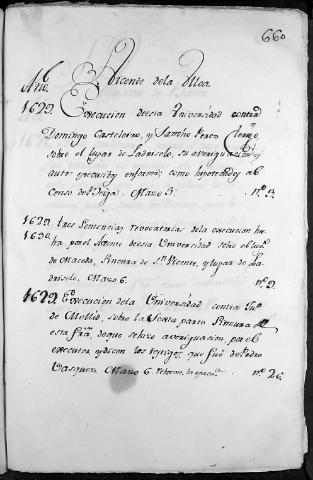 660
Vicente dela Ulloa.
Año.
1629. Execucion deesta Universidad contra
Domingo Casteleiro, y Sancho Perez Clerigo,
sobre el lugar de Ladriselo, su averiguacion, y
auto executivo en forma; como hipothecado al
Censo de Veiga. Mazo 5. nº. 3.
1629. tres Sentencias revocatorias dela execucion he-
1630. ha por el Asiento deesta Universidad sobre el
de Maceda, Sincura de Sn. Vicente, y lugar de La-
driselo. Mazo 6. nº. 9.
1629. Execucion dela Universidad contra
de Mellid, sobre la Sexta parte Sincura de
esta fra, de que se hizo averiguacion, por el
executor, y dicen los testigos, que fue de Pedro
Vasquez Mazo 6. nº. 26.